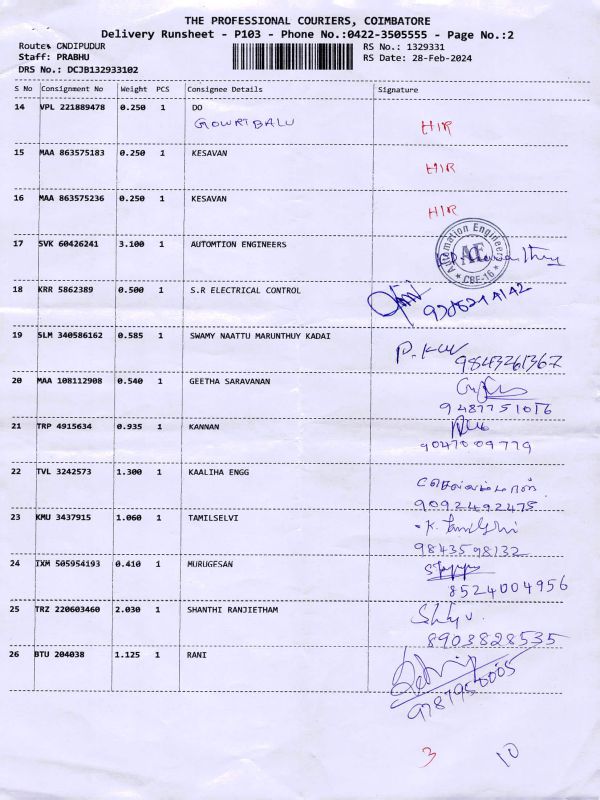 THE PROFESSIONAL COURIERS, COIMBATORE
Delivery Runsheet - P103 - Phone No.:0422-3505555 - Page No.:2
Route: GNDIPUDUR
RS No.: 1329331
Staff: PRABHU
RS Date: 28-Feb-2024
DRS No.: DCJB132933102
S No Consignment No Weight PCS Consignee Details Signature
14 VPL 221889478 0.250 1 DO
GOWRI BALU HIR
15 MAA 863575183 0.250 1 KESAVAN
HIR
16 MAA 863575236 0.250 1 KESAVAN
HIR
17 SVK 60426241 3.100 1 AUTOMTION ENGINEERS
Automation Engineers
AE
* CBE-16 *
18 KRR 5862389 0.500 1 S.R ELECTRICAL CONTROL
19 SLM 340586162 0.585 1 SWAMY NAATTU MARUNTHUY KADAI
9843261367
20 MAA 108112908 0.540 1 GEETHA SARAVANAN
9487751016
21 TRP 4915634 0.935 1 KANNAN
9047009779
22 TVL 3242573 1.300 1 KAALIHA ENGG
9092492475
23 KMU 3437915 1.060 1 TAMILSELVI
K. Tamilselvi
9843598132
24 IXM 505954193 0.410 1 MURUGESAN
8524004956
25 TRZ 220603460 2.030 1 SHANTHI RANJIETHAM
8903828535
26 BTU 204038 1.125 1 RANI
9787950005
3 10